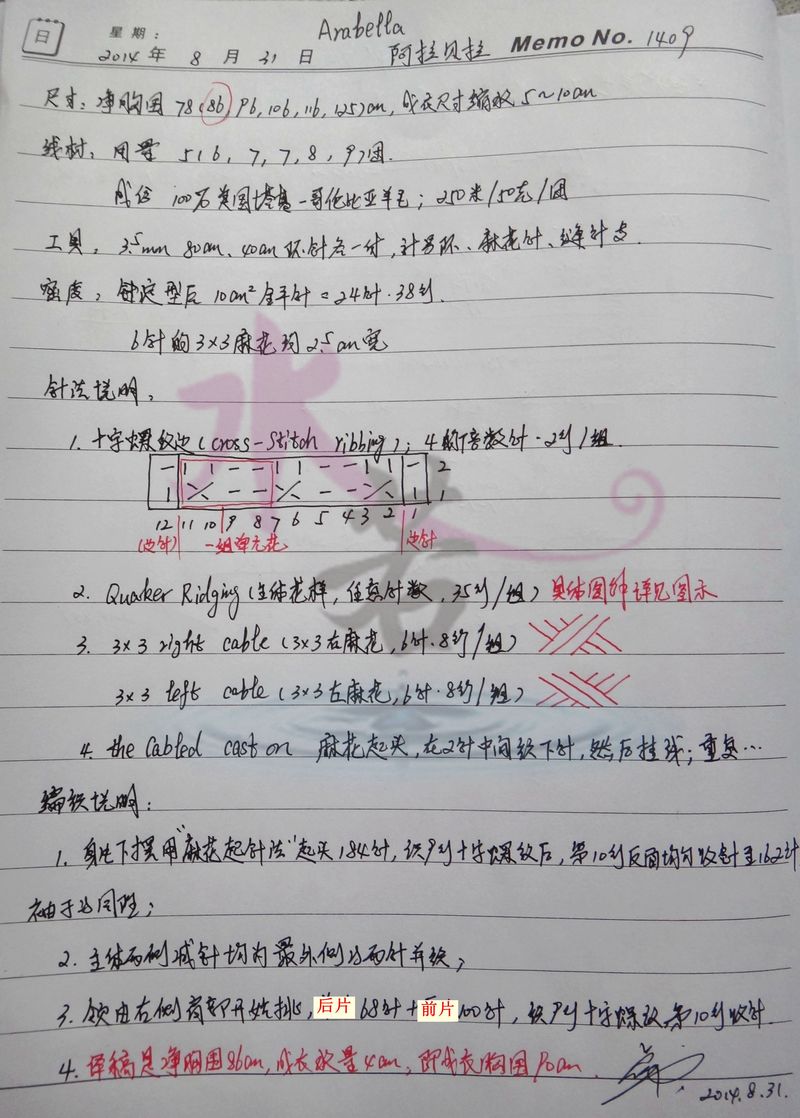 日 星期： Arabella
2014年 8月31日 阿拉贝拉 Memo No. 1409
尺寸：净胸围 78(86, 96, 106, 116, 125)cm, 成衣尺寸缩放 5~10cm
线材：用量 5(6, 7, 7, 8, 9)团.
成份 100% 美国塔基-哥伦比亚羊毛；250米/50克/团
工具：3.5mm 80cm、40cm环针各一付，针号环、麻花针、缝针支.
密度：针定型后 10cm²全平针=24针·38行.
6针的3×3麻花约2.5cm宽
针法说明：
1. 十字螺纹边(cross-stitch ribbing)；4的倍数针·2行/组.
2
1
12 11 10 9 8 7 6 5 4 3 2 1
(边针) 一组单元花 边针
2. Quaker Ridging (主体花样, 任意针数, 35行/组) 具体图解详见图示
3. 3×3 right cable (3×3右麻花, 6针·8行/组)
3×3 left cable (3×3左麻花, 6针·8行/组)
4. the cabled cast on 麻花起头, 在2针中间织下针, 然后挂线；重复…
编织说明：
1. 身片下摆用"麻花起针法"起头184针, 织9行十字螺纹后, 第10行反面均匀收针至162针
袖子与同理；
2. 主体两侧减针均为最外侧的两针并织；
3. 领由右侧肩部开始挑, 后片68针+前片100针, 织9行十字螺纹第10行收针.
4. 译稿是净胸围86cm, 成衣放量4cm, 即成衣胸围90cm.
2014.8.31.
水若